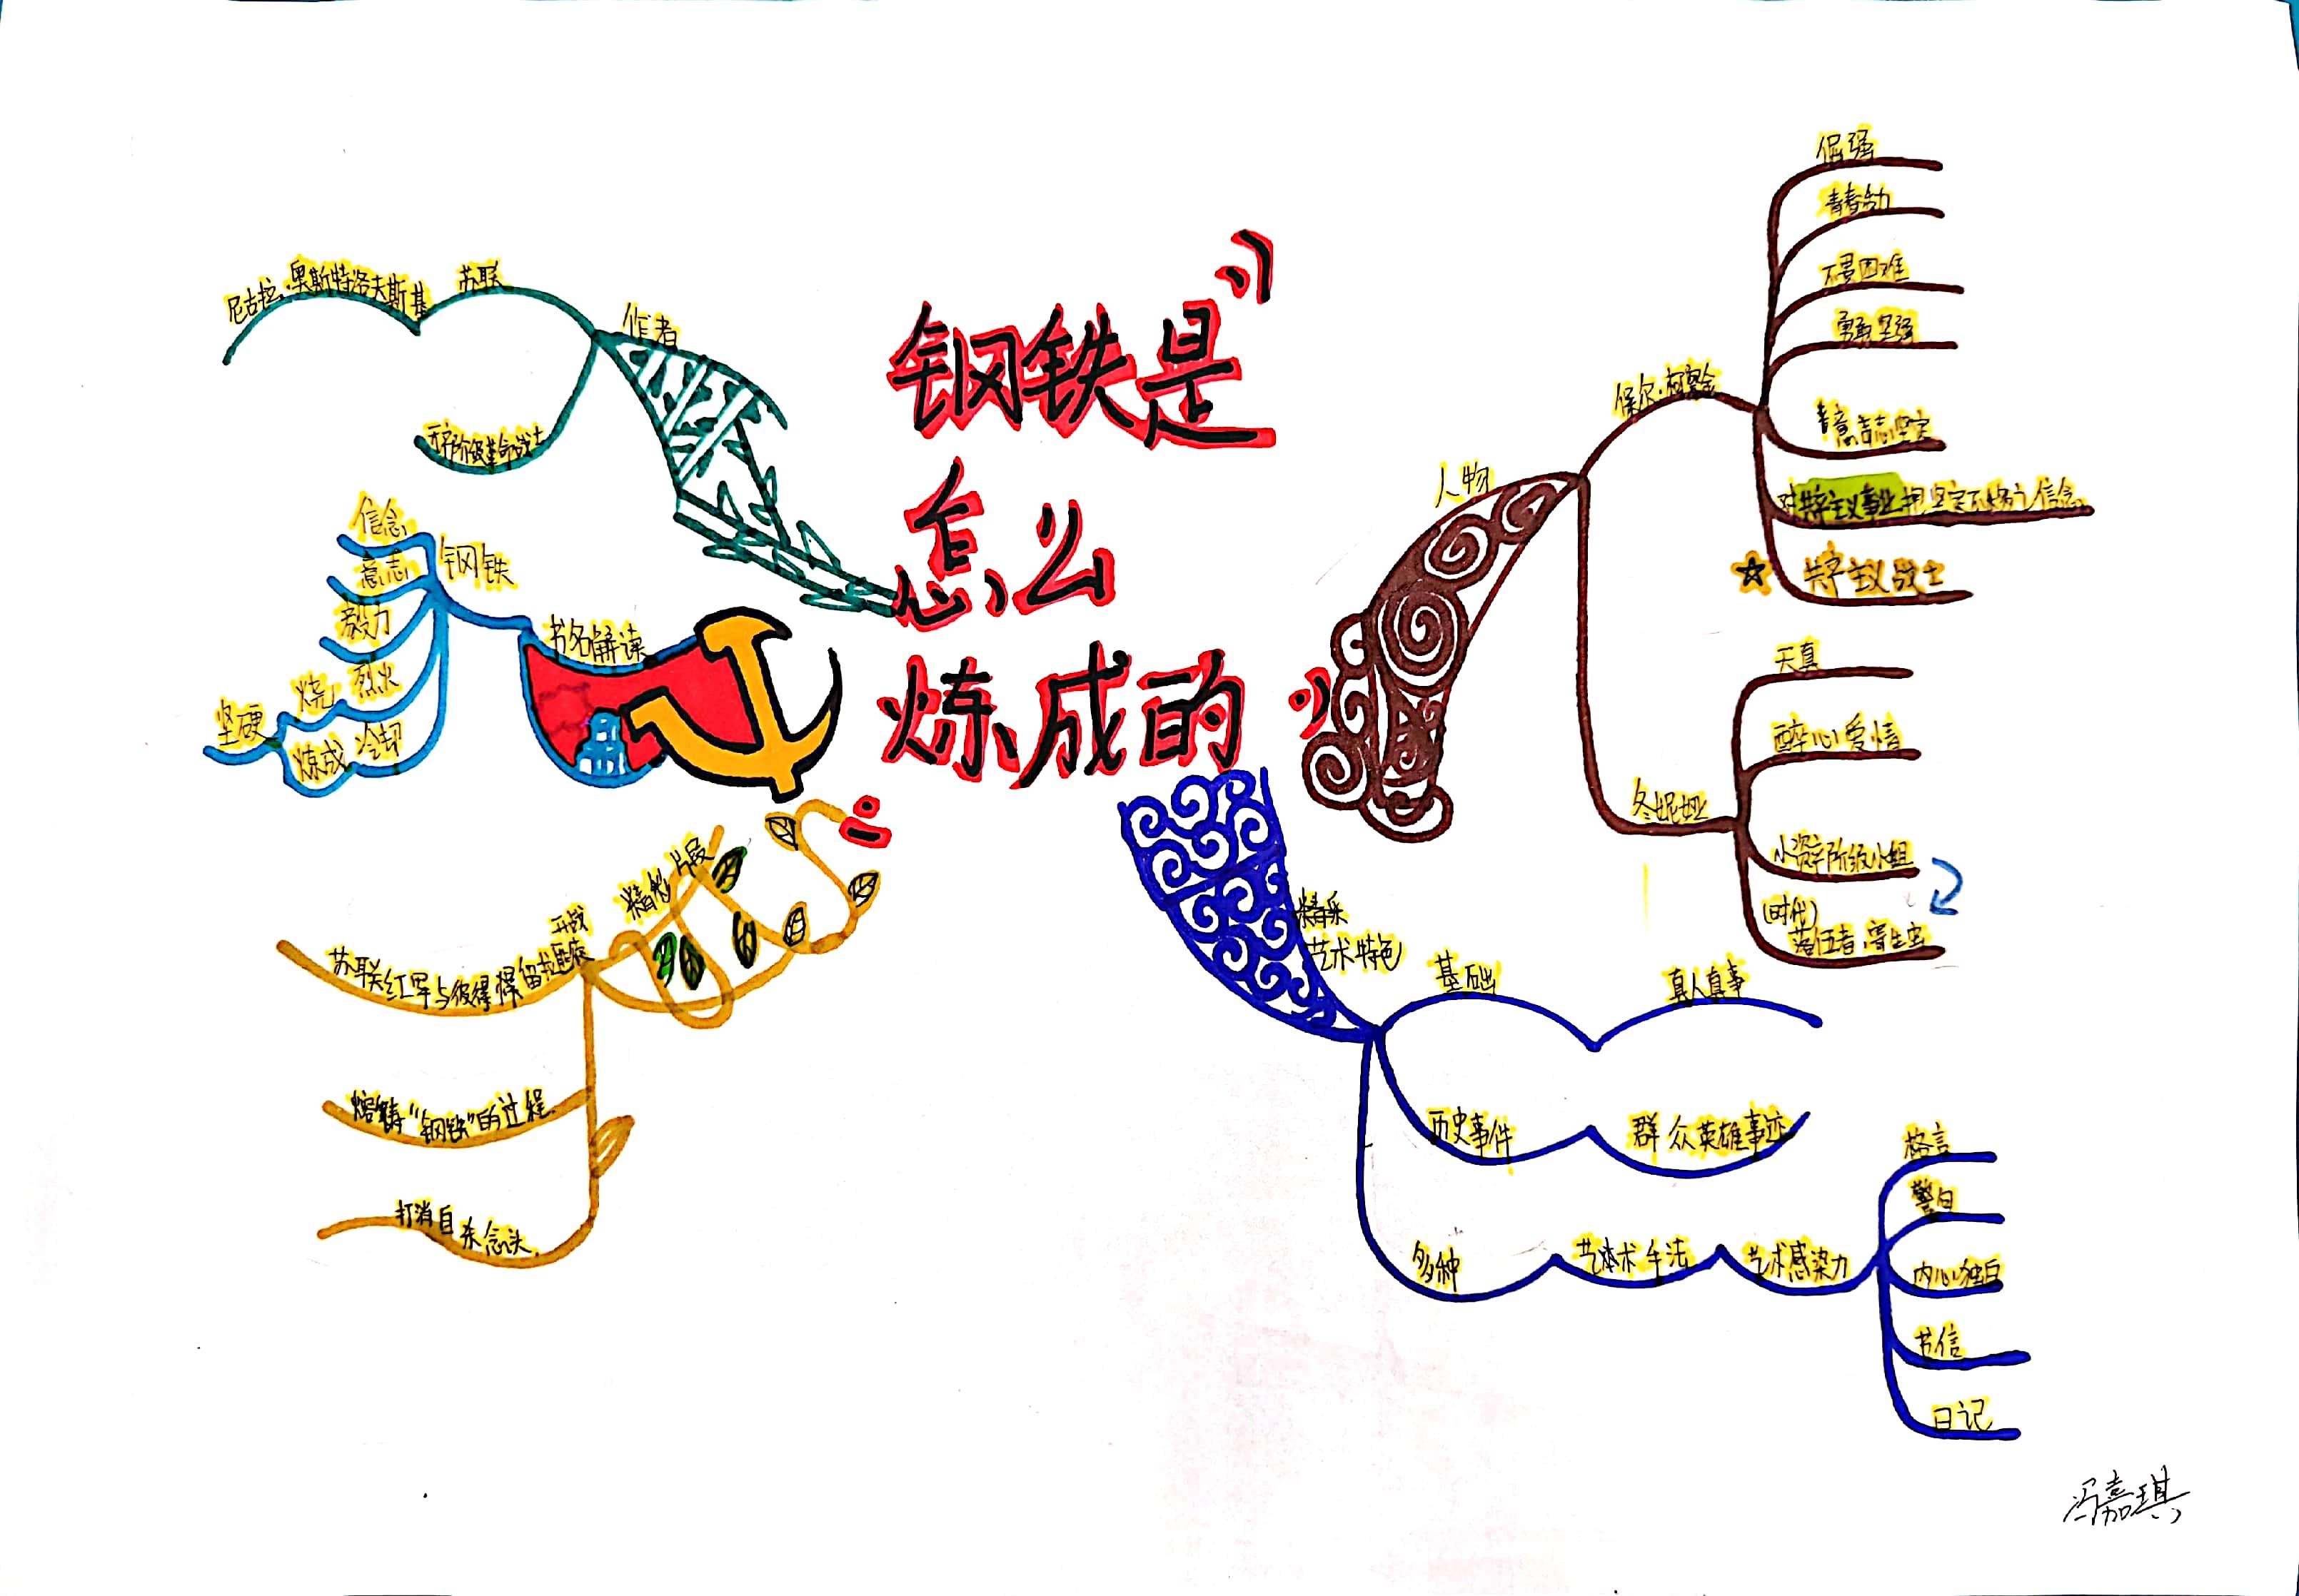 钢铁是
怎么
炼成的
作者
苏联
尼古拉·奥斯特洛夫斯基
无产阶级革命战士
书名解读
钢铁
信念
意志
毅力
烈火
烧
冷却
炼成
坚硬
精彩片段
苏联红军与彼得留拉匪
熔铸“钢铁”的过程
打消自杀念头
人物
保尔·柯察金
倔强
不畏困难
勇敢坚强
意志坚定
对共产主义事业抱坚定不移的信念
共产主义战士
冬妮娅
天真
醉心爱情
小资产阶级小姐
(时代)
落伍者、寄生虫
艺术特色
基础
真人真事
历史事件
群众英雄事迹
多种
艺术手法
艺术感染力
格言
警句
内心独白
书信
日记
冯嘉琪